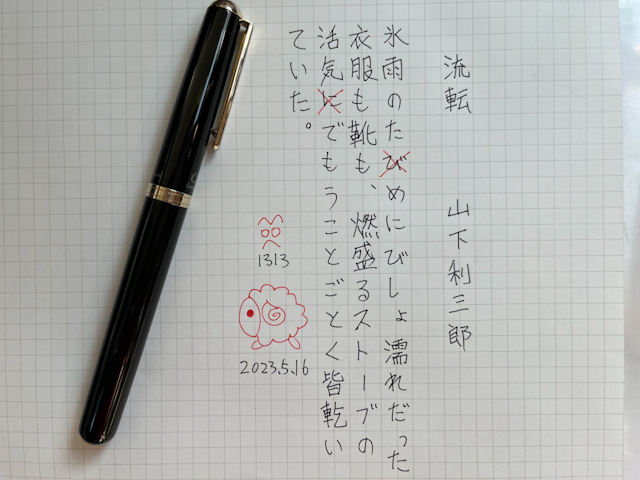 流転　山下利三郎
氷雨のたびめにびしょ濡れだった
衣服も靴も、燃盛るストーブの
活気にでもうことごとく皆乾い
ていた。
1313
2023.5.16